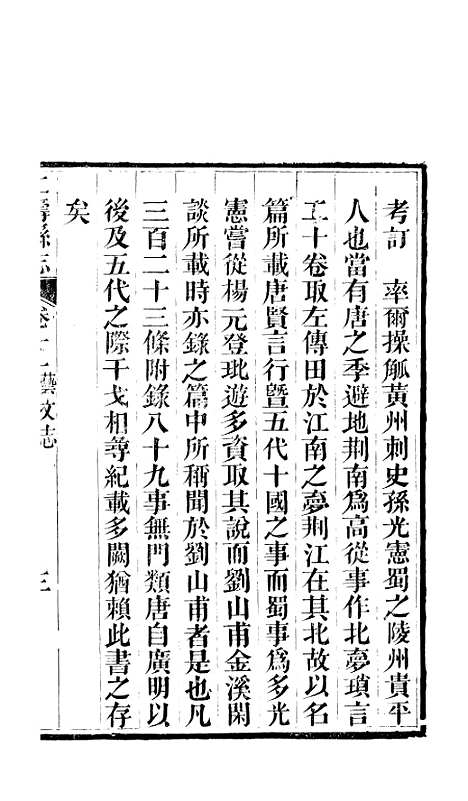 考訂 率爾操觚黃州刺史孫光憲蜀之陵州貴平
人也當有唐之季避地荆南爲高從事作北夢瑣言
二十卷取左傳田於江南之夢荆江在其北故以名
篇所載唐賢言行暨五代十國之事而蜀事爲多光
憲嘗從楊元登玭遊多資取其說而劉山甫金溪閑
談所載時亦錄之篇中所稱聞於劉山甫者是也凡
三百二十三條附錄八十九事無門類唐自廣明以
後及五代之際干戈相尋紀載多闕猶賴此書之存
矣
壽縣志 藝文志